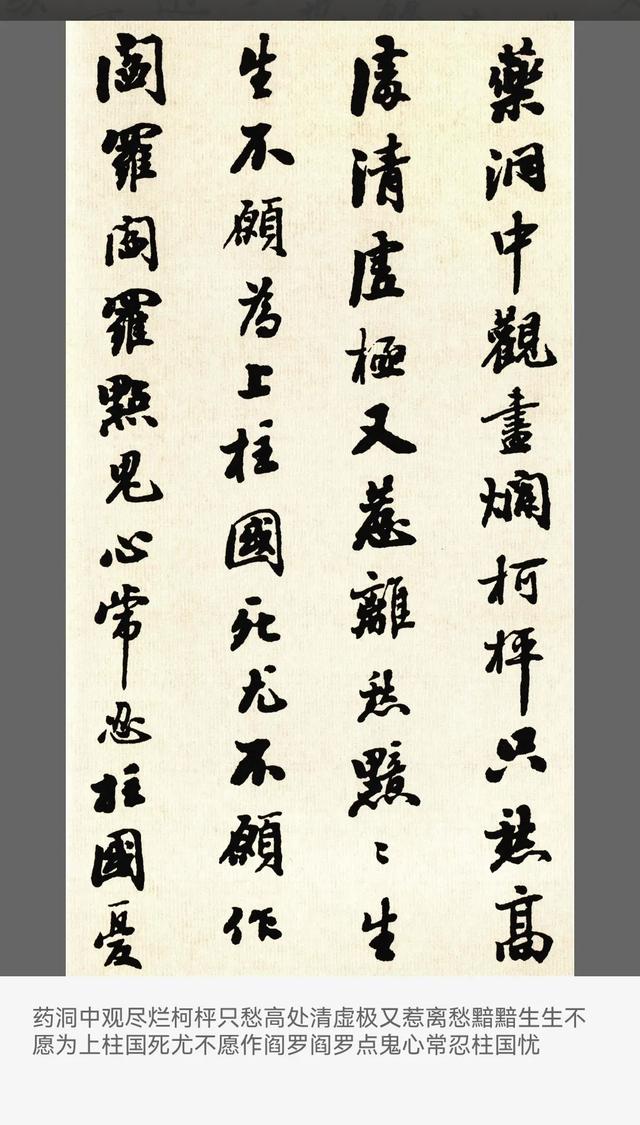 藥洞中觀盡爛柯枰只愁高
處清虛極又惹離愁黯〻生
生不願為上柱國死尤不願作
閻羅閻羅點鬼心常忍柱國憂
药洞中观尽烂柯枰只愁高处清虚极又惹离愁黯黯生生不
愿为上柱国死尤不愿作阎罗阎罗点鬼心常忍柱国忧